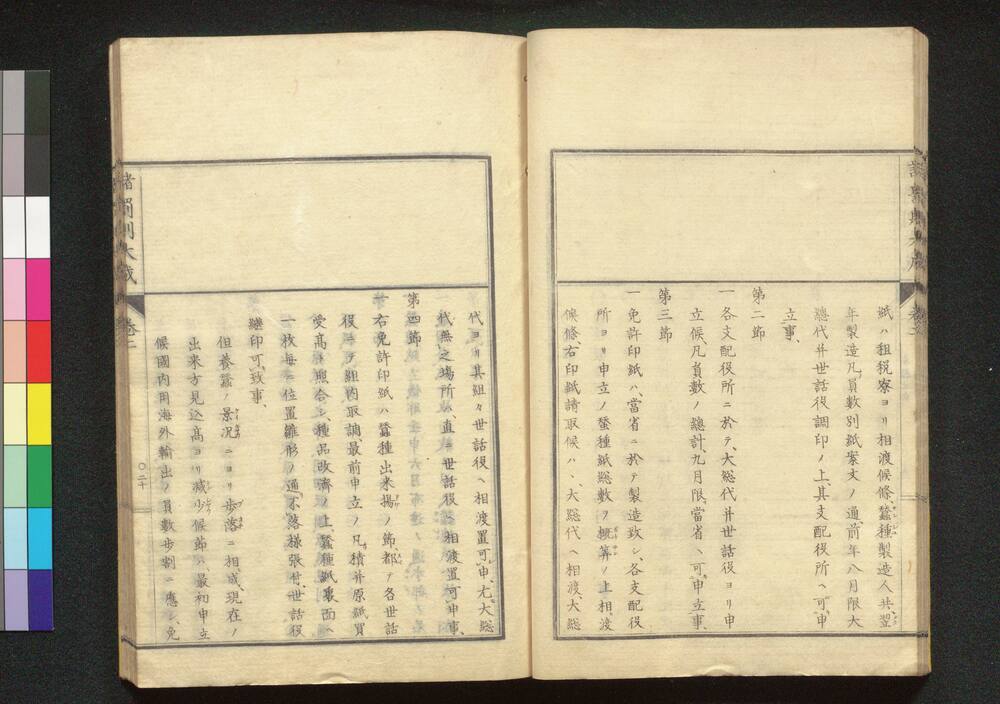 紙ハ租税寮ヨリ相渡候條蠶種製造人共、翌
年製造凡員數別紙案文ノ通、前年八月限大
總代并世話役調印ノ上、其支配役所ヘ可申
立事、
第二節
一各支配役所ニ於テ、大總代并世話役ヨリ申
立候凡員數ノ總計、九月限、當省ヘ可申立事、
第三節
一免許印紙ハ、當省ニ於テ製造致シ、各支配役
所ヨリ申立ノ蚕種紙總數ノ概算ノ上相渡
候條、右印紙請取候ハヽ、大總代ヘ相渡、大總
代ヨリ其組々世話役ヘ相渡置可申、尤大總
代無之場所ハ、直ニ世話役ヘ相渡置可申事、
第四節
一右免許印紙ハ、蠶種出來揚ノ節、都テ各世話
役ニテ組内取調、最前申立ノ凡積并原紙買
受高ニ照合シ、種品改濟ノ上、蠶種紙裏面ヘ
一枚毎ニ位置雛形ノ通、不落樣張付、世話役
繼印可致事、
但養蠶ノ景况ニヨリ歩落ニ相成、現在ノ
出來方見込高ヨリ減少候節ハ、最初申立
候國内用海外輸出ノ員數歩割ニ應シ、免
諸罰則大成
卷之二
〇二十